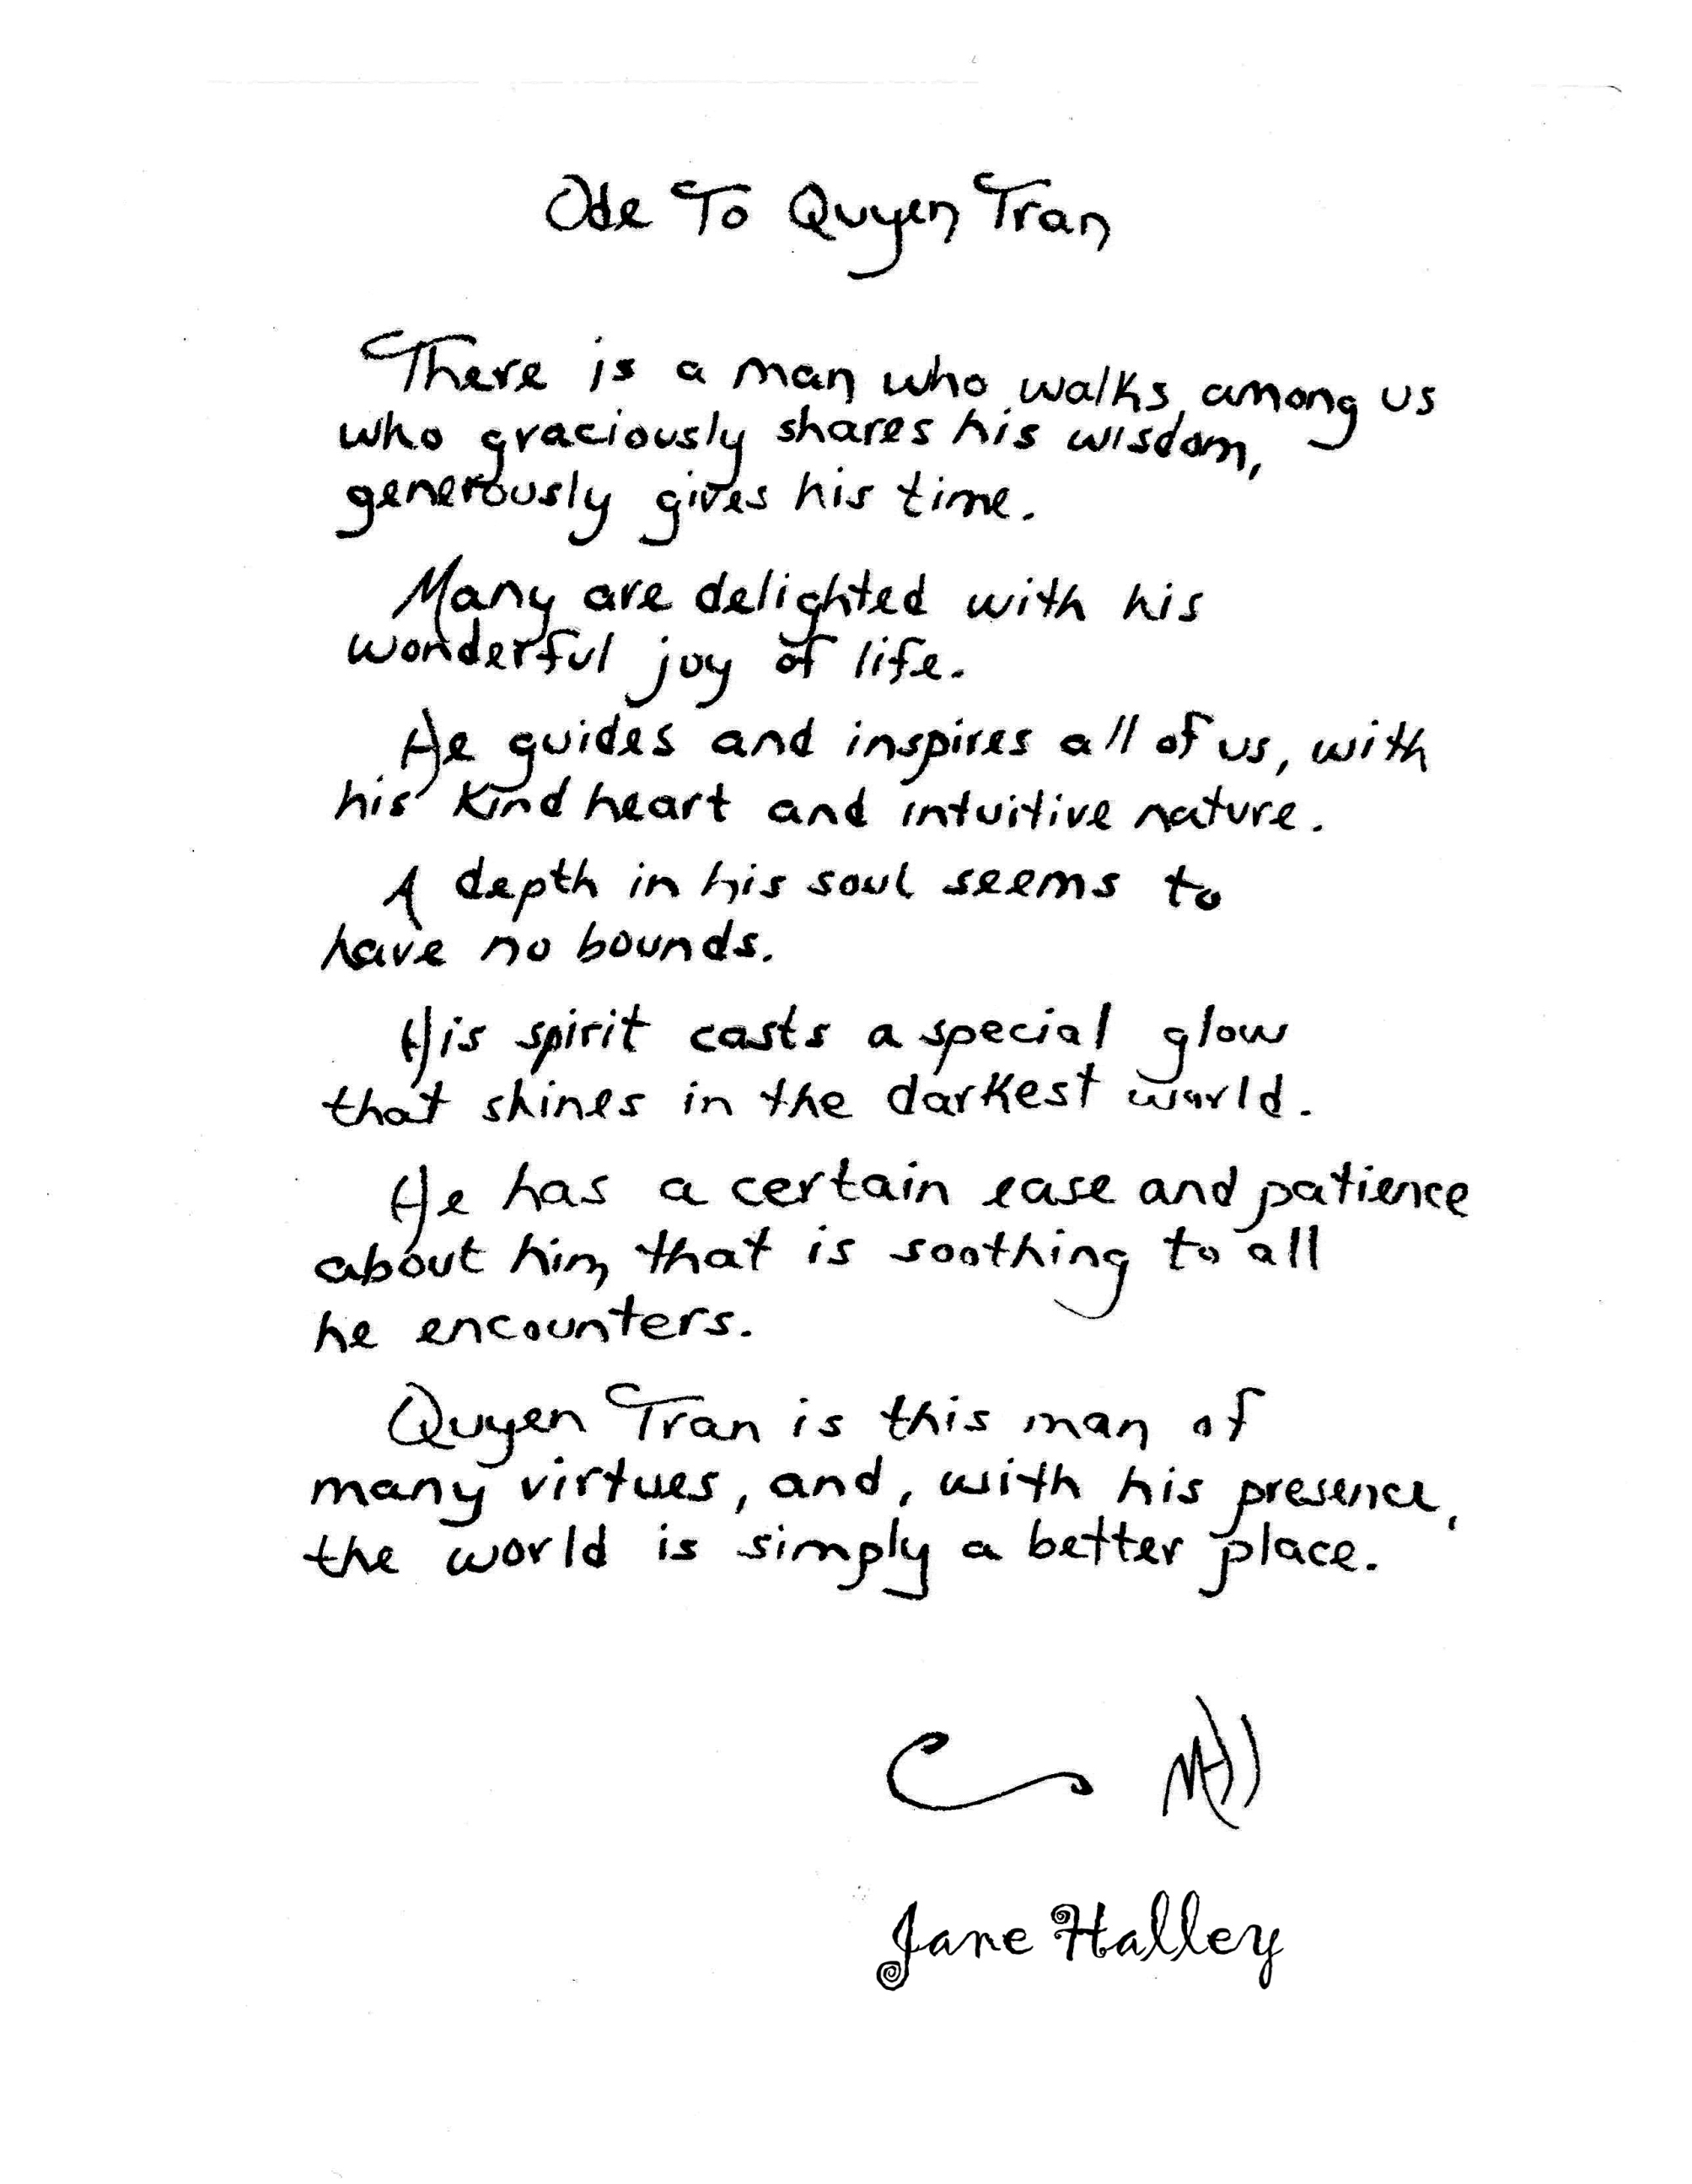 Ode To Quyen Tran
There is a man who walks among us
who graciously shares his wisdom,
generously gives his time.
Many are delighted with his
wonderful joy of life.
He guides and inspires all of us, with
his kind heart and intuitive nature.
A depth in his soul seems to
have no bounds.
His spirit casts a special glow
that shines in the darkest world.
He has a certain ease and patience
about him that is soothing to all
he encounters.
Quyen Tran is this man of
many virtues, and, with his presence,
the world is simply a better place.
Jane Halley